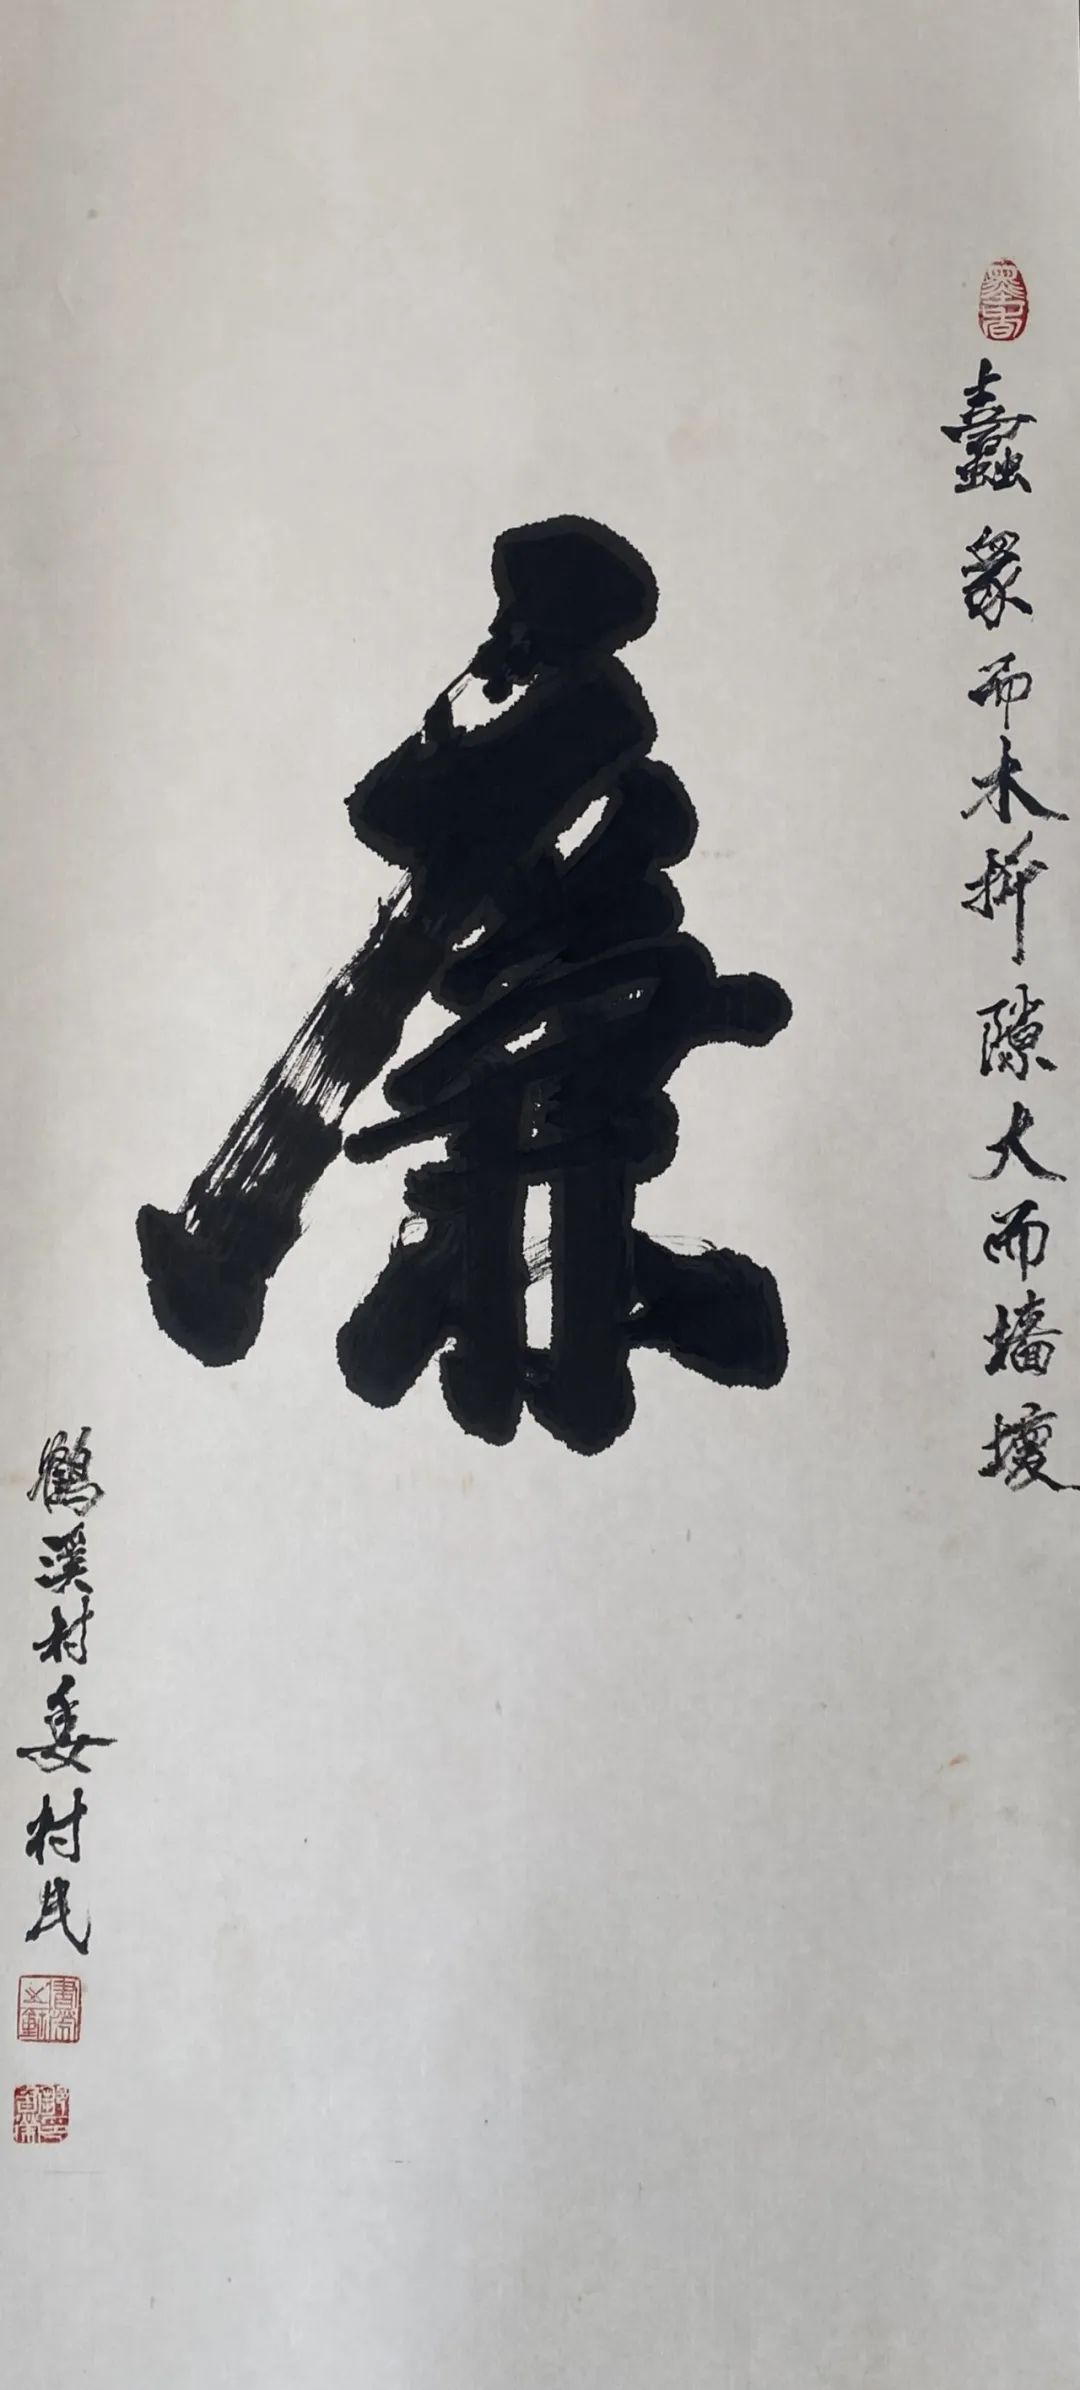 蠹众而木折隙大而墙坏
廉
鹤溪村委村民
墨香